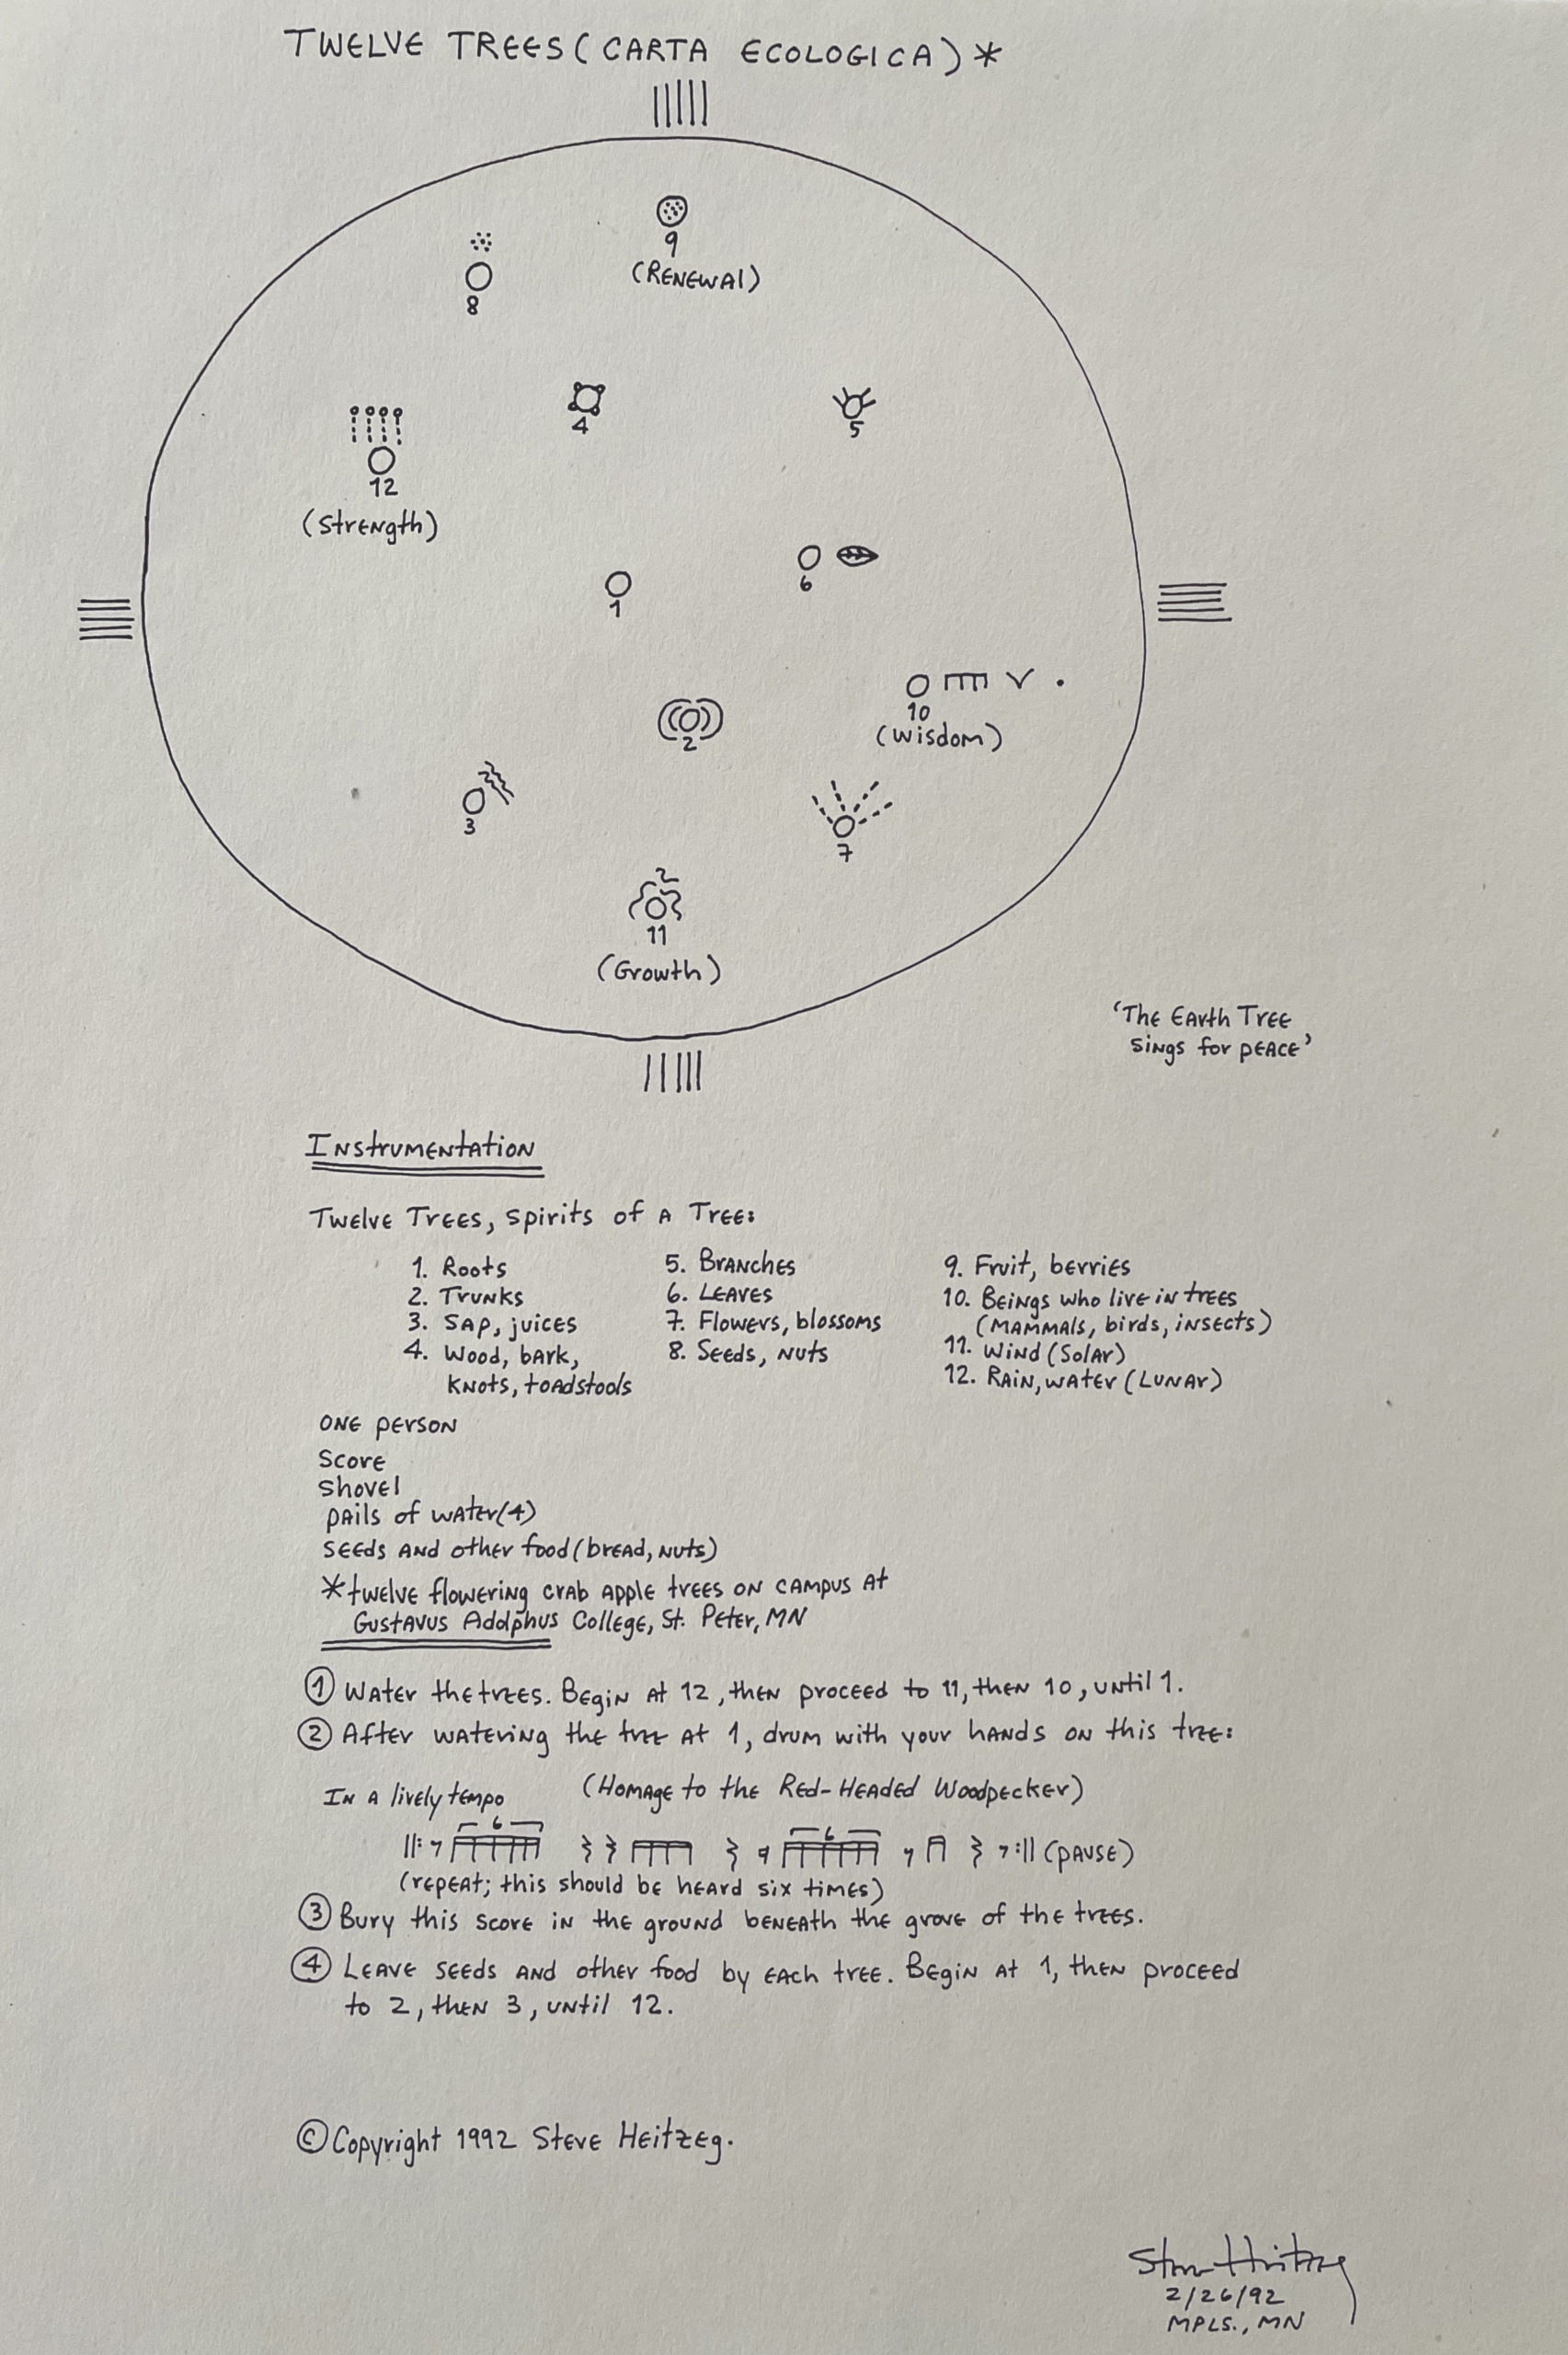 TWELVE TREES (CARTA ECOLOGICA) *
9
(RENEWAL)
8
4
5
12
(Strength)
6
1
10
(Wisdom)
2
3
7
11
(Growth)
'The Earth Tree
sings for peace'
Instrumentation
Twelve Trees, spirits of a Tree:
1. Roots
2. Trunks
3. Sap, juices
4. Wood, bark,
knots, toadstools
5. Branches
6. Leaves
7. Flowers, blossoms
8. Seeds, nuts
9. Fruit, berries
10. Beings who live in trees
(mammals, birds, insects)
11. Wind (Solar)
12. Rain, water (Lunar)
one person
Score
Shovel
pails of water (4)
seeds and other food (bread, nuts)
* twelve flowering crab apple trees on campus at
Gustavus Adolphus College, St. Peter, MN
① Water the trees. Begin at 12, then proceed to 11, then 10, until 1.
② After watering the tree at 1, drum with your hands on this tree:
In a lively tempo (Homage to the Red-Headed Woodpecker)
6 6 (pause)
(repeat; this should be heard six times)
③ Bury this score in the ground beneath the grove of the trees.
④ Leave seeds and other food by each tree. Begin at 1, then proceed
to 2, then 3, until 12.
© Copyright 1992 Steve Heitzeg.
Steve Heitzeg
2/26/92
MPLS., MN